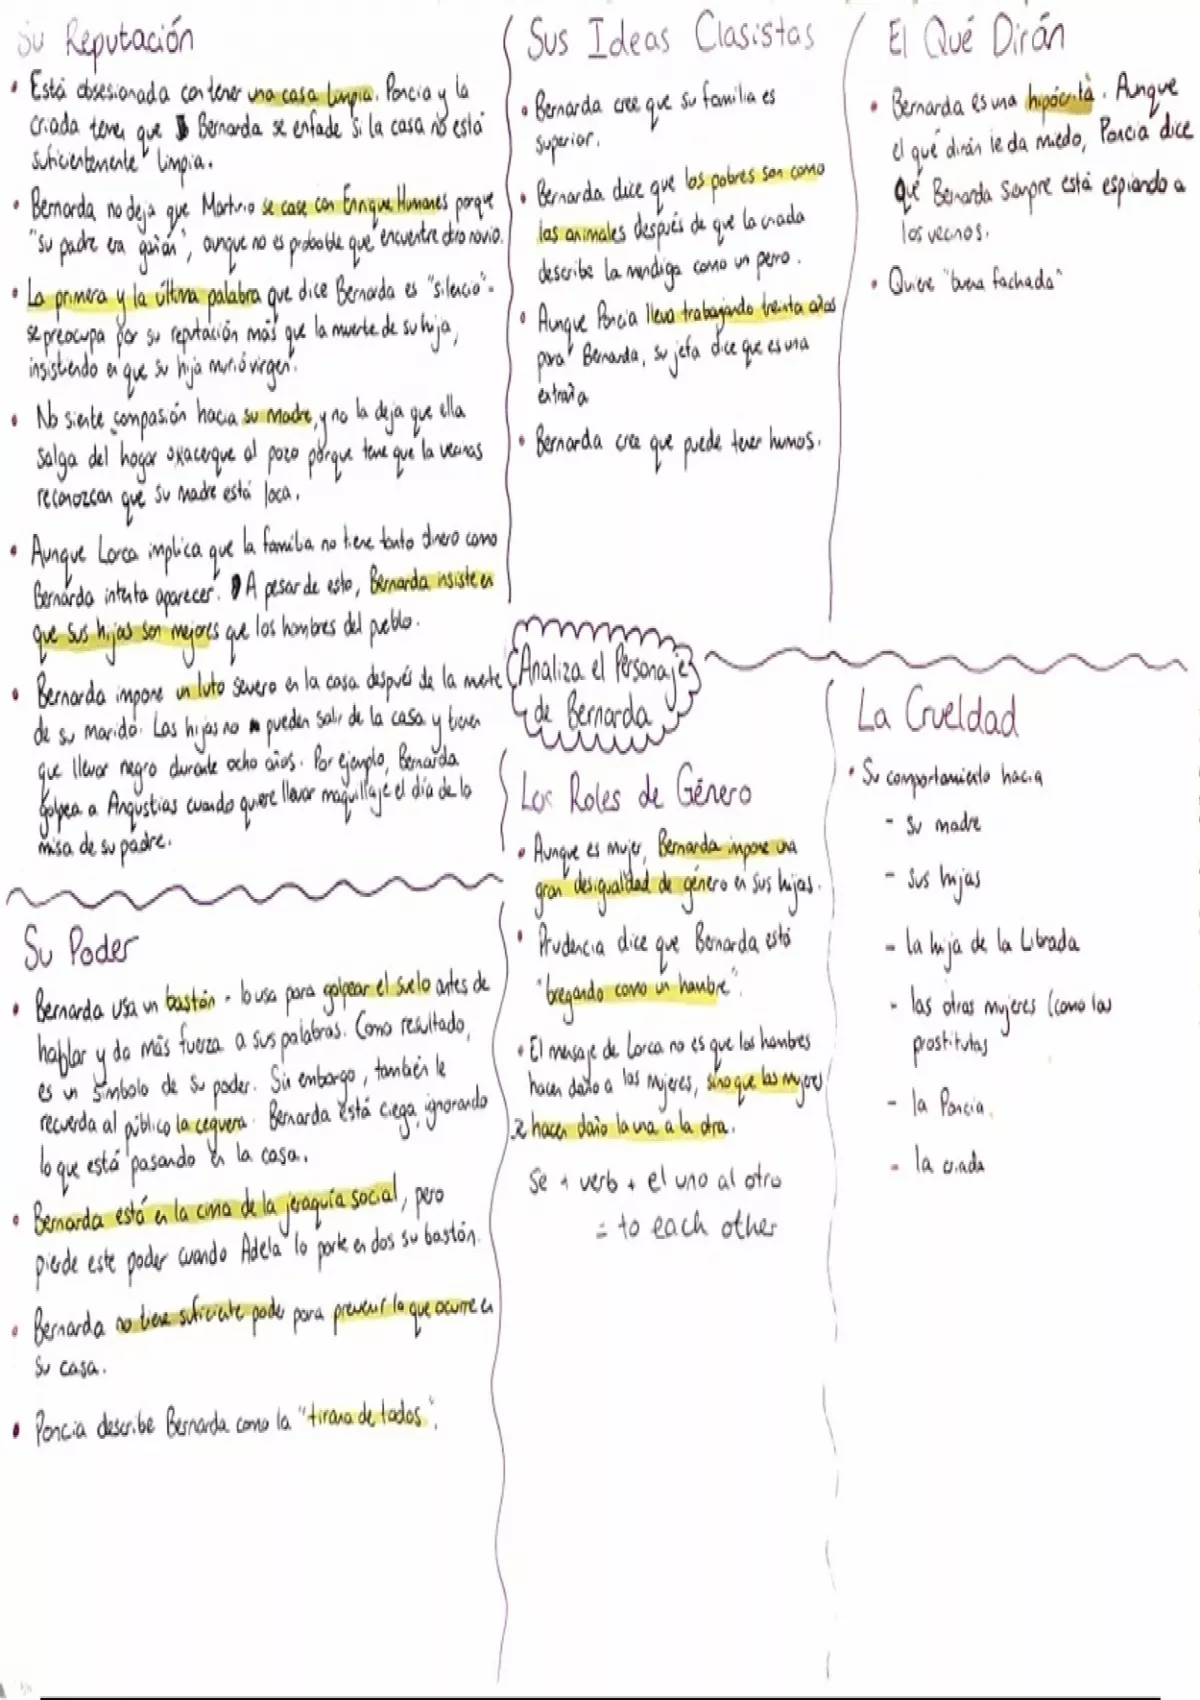 Su Reputación
• Está obsesionada con tener una casa limpia. Poncia y la
criada temen que Bernarda se enfade si la casa no está
suficientemente limpia.
• Bernarda no deja que Martirio se case con Enrique Humanes porque
"su padre era gañán", aunque no es probable que encuentre otro novio.
• La primera y la última palabra que dice Bernarda es "silencio" -
se preocupa por su reputación más que la muerte de su hija,
insistiendo en que su hija murió virgen.
• No siente compasión hacia su madre, y no la deja que ella
salga del hogar o acerque al pozo porque teme que la vecinas
reconozcan que su madre está loca.
• Aunque Lorca implica que la familia no tiene tanto dinero como
Bernarda intenta aparecer. A pesar de esto, Bernarda insiste en
que sus hijas son mejores que los hombres del pueblo.
• Bernarda impone un luto severo en la casa después de la muerte
de su marido. Las hijas no pueden salir de la casa y tienen
que llevar negro durante ocho años. Por ejemplo, Bernarda
golpea a Angustias cuando quiere llevar maquillaje el día de la
misa de su padre.
Su Poder
• Bernarda usa un bastón - lo usa para golpear el suelo antes de
hablar y da más fuerza a sus palabras. Como resultado,
es un símbolo de su poder. Sin embargo, también le
recuerda al público la ceguera. Bernarda está ciega, ignorando
lo que está pasando en la casa.
• Bernarda está en la cima de la jeraquía social, pero
pierde este poder cuando Adela lo parte en dos su bastón.
• Bernarda no tiene suficiente poder para prevenir lo que ocurre en
su casa.
• Poncia describe Bernarda como la "tirana de todos".
Sus Ideas Clasistas
• Bernarda cree que su familia es
superior.
• Bernarda dice que los pobres son como
los animales después de que la criada
describe la mendiga como un perro.
• Aunque Poncia lleva trabajando treinta años
para Bernarda, su jefa dice que es una
extraña
• Bernarda cree que puede tener humos.
El Qué Dirán
• Bernarda es una hipócrita. Aunque
el qué dirán le da miedo, Poncia dice
que Bernarda siempre está espiando a
los vecinos.
• Quiere "buena fachada"
Analiza el Personaje
de Bernarda
Los Roles de Género
• Aunque es mujer, Bernarda impone una
gran desigualdad de género en sus hijas.
• Prudencia dice que Bernarda está
"bregando como un hombre".
• El mensaje de Lorca no es que los hombres
hacen daño a las mujeres, sino que las mujeres
se hacen daño la una a la otra.
Se + verb + el uno al otro
= to each other
La Crueldad
• Su comportamiento hacia
- su madre
- sus hijas
- la hija de la Librada
- las otras mujeres (como las
prostitutas
- la Poncia
- la criada